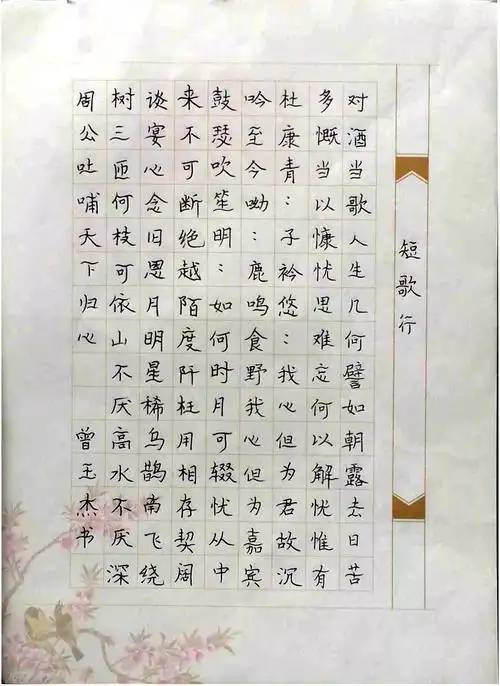 短歌行
对酒当歌人生几何譬如朝露去日苦
多慨当以慷忧思难忘何以解忧惟有
杜康青：子衿悠：我心但为君故沉
吟至今呦：鹿鸣食野我心但为嘉宾
鼓瑟吹笙明：如何时月可辍忧从中
来不可断绝越陌度阡枉用相存契阔
谈宴心念旧恩月明星稀乌鹊南飞绕
树三匝何枝可依山不厌高水不厌深
周公吐哺天下归心 曾玉杰书